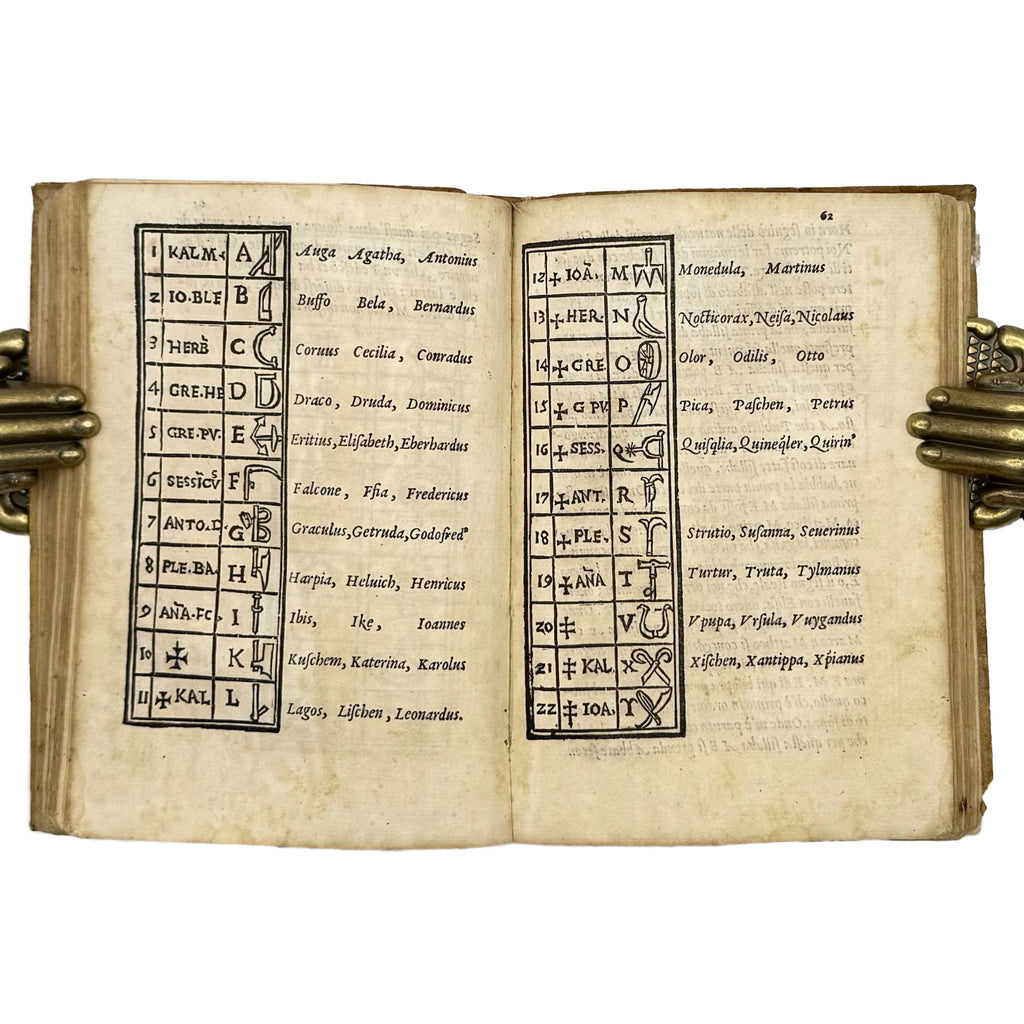 1 KALM. A Auga Agatha, Antonius
2 IO.BLE B Buffo Bela, Bernardus
3 HERB̃ C Coruus Cecilia, Conradus
4 GRE.HE D Draco, Druda, Dominicus
5 GRE.PV. E Eritius, Eliſabeth, Eberhardus
6 F Falcone, Ffia, Fredericus
7 ANTO.D. G Graculus, Getruda, Godofred⁹
8 PLE.BA. H Harpia, Heluich, Henricus
9 AÑA.FC I Ibis, Ike, Ioannes
10 ✠ K Kuſchem, Katerina, Karolus
11 ✠ KAL L Lagos, Liſchen, Leonardus.
62
12 ✠ IOÃ. M Monedula, Martinus
13 ✠ HER. N Nocticorax, Neiſa, Nicolaus
14 ✠ GRE O Olor, Odilis, Otto
15 ✠ G PV. P. Pica, Paſchen, Petrus
16 ✠ SESS. Q Quiſq̃lia, Quineq̃ler, Quirin⁹
17 ✠ ANT. R
18 ✠ PLE. S Strutio, Suſanna, Seuerinus
19 ✠ AÑA T Turtur, Truta, Tylmanus
20 ‡ V Vpupa, Vrſula, Vuygandus
21 ‡ KAL. X Xiſchen, Xantippa, Xp̃ianus
22 ‡ IOA. ϒ